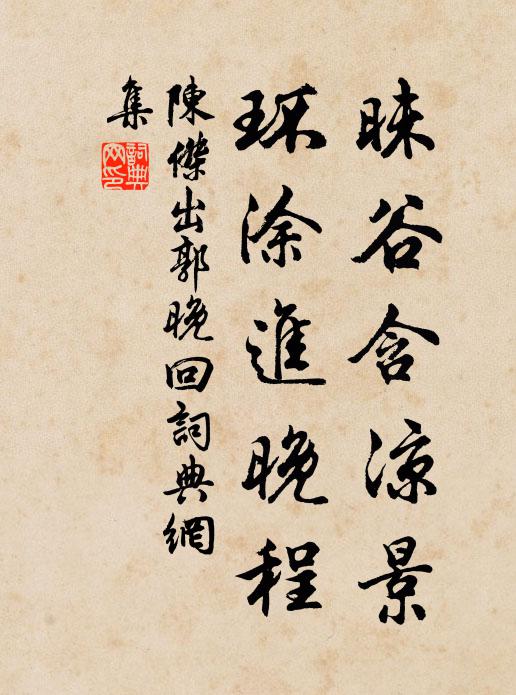 昧谷含涼景
环涂進晚程
陳傑出郭晚回詞典網
集
詞典网印